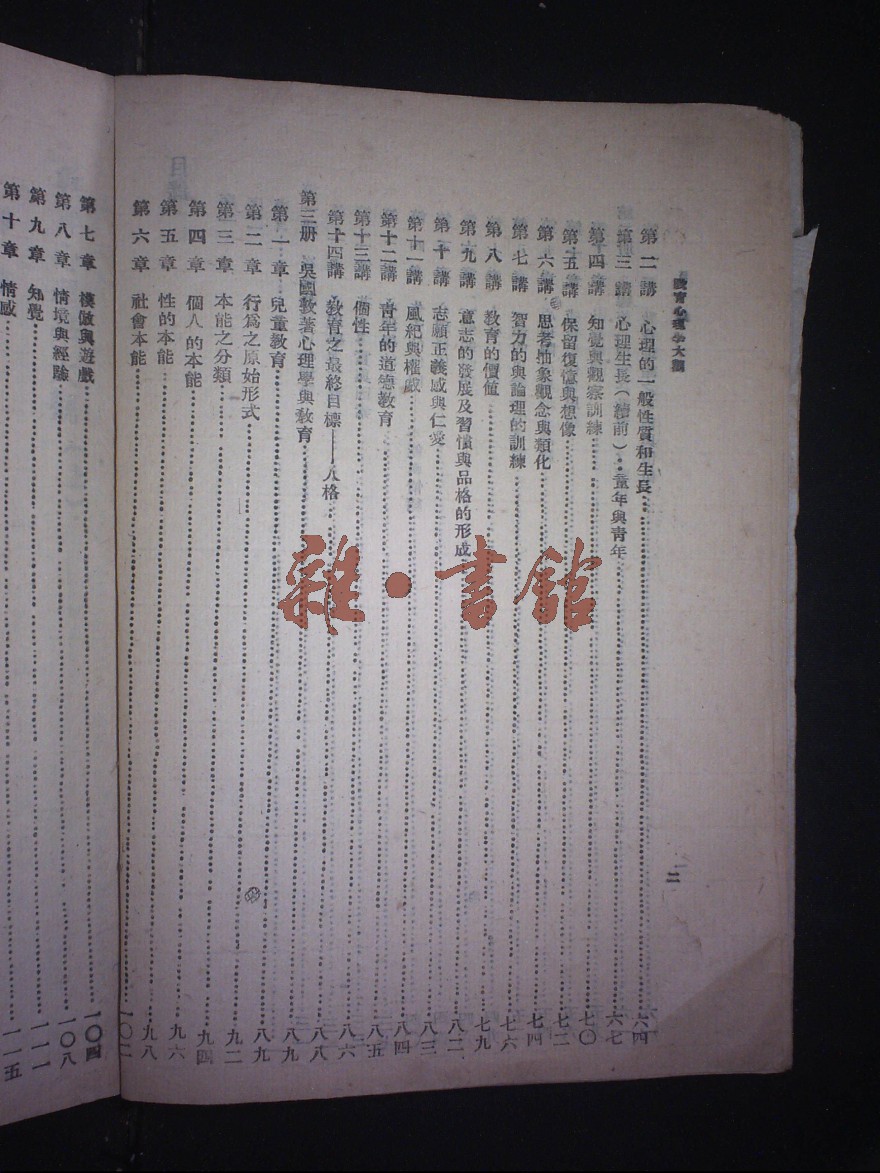 教育心理學大綱
二
第二講 心理的一般性質和生長……六四
第三講 心理生長(續前)：童年與青年……六七
第四講 知覺與觀察訓練……七〇
第五講 保留復憶與想像……七二
第六講 思考抽象觀念與類化……七四
第七講 智力的與論理的訓練……七六
第八講 教育的價值……七九
第九講 意志的發展及習慣與品格的形成……八二
第十講 志願正義感與仁愛……八三
第十一講 風紀與權威……八四
第十二講 青年的道德教育……八五
第十三講 個性……八六
第十四講 教育之最終目標——人格……八八
第三册 吳國教著心理學與教育……八九
第一章 兒童教育……八九
第二章 行為之原始形式……九二
第三章 本能之分類……九四
第四章 個人的本能……九六
第五章 性的本能……九八
第六章 社會本能……一〇二
第七章 模倣與遊戲……一〇四
第八章 情境與經驗……一〇八
第九章 知覺……一一一
第十章 情感……一一五
雜·書館